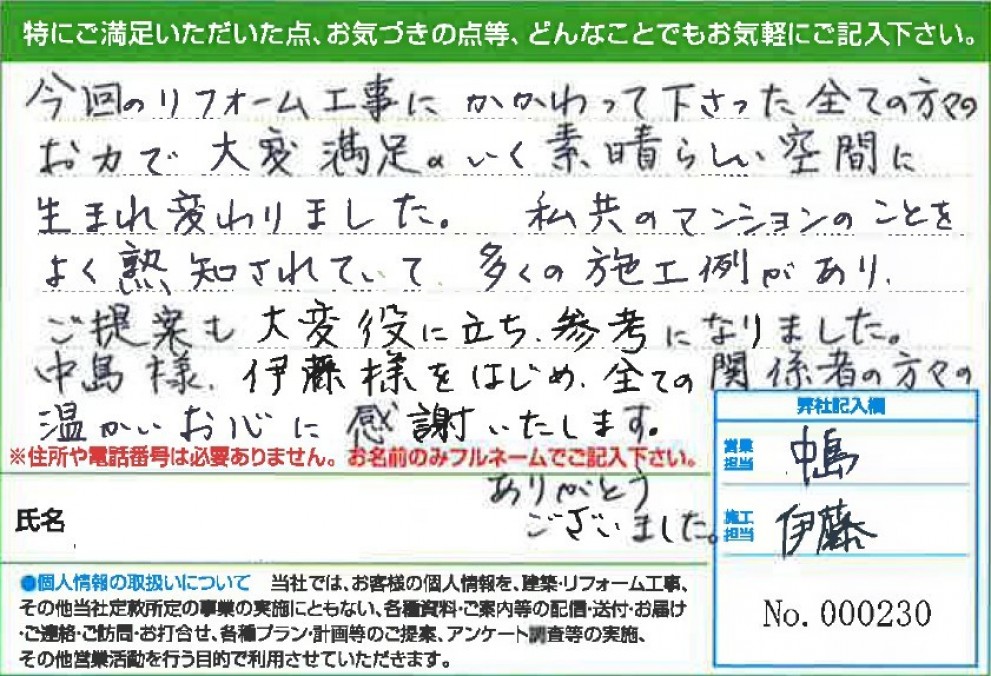 特にご満足いただいた点、お気づきの点等、どんなことでもお気軽にご記入下さい。
今回のリフォーム工事に かかわって下さった 全ての方々の
お力で 大変 満足のいく 素晴らしい 空間に
生まれ変わりました。 私共のマンションのことを
よく熟知されていて、多くの施工例があり、
ご提案も 大変役に立ち、参考になりました。
中島様、伊藤様をはじめ、全ての関係者の方々の
温かいお心に 感謝いたします。
ありがとう
ございました。
※住所や電話番号は必要ありません。お名前のみフルネームでご記入下さい。
氏名
弊社記入欄
営業担当 中島
施工担当 伊藤
No. 000230
●個人情報の取扱いについて 当社では、お客様の個人情報を、建築・リフォーム工事、
その他当社定款所定の事業の実施にともない、各種資料・ご案内等の配信・送付・お届け
・ご連絡・ご訪問・お打合せ、各種プラン・計画等のご提案、アンケート調査等の実施、
その他営業活動を行う目的で利用させていただきます。